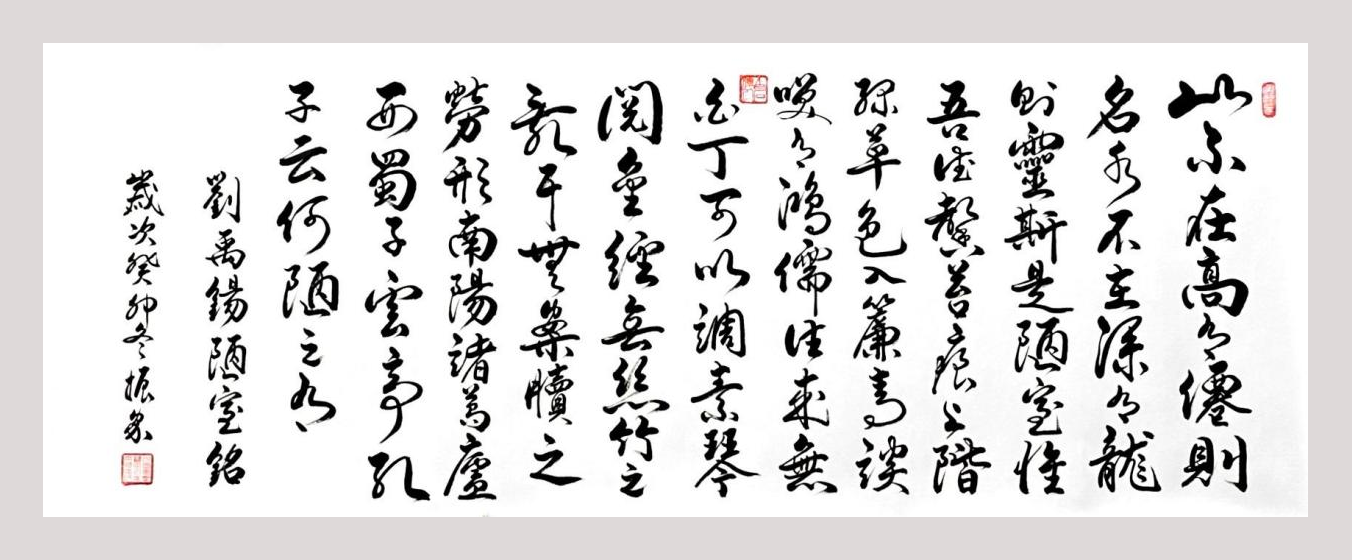 山不在高有僊則
名水不在深有龍
則靈斯是陋室惟
吾德馨苔痕上階
綠草色入簾青談
笑有鴻儒往來無
白丁可以調素琴
閱金經無絲竹之
亂耳無案牘之
勞形南陽諸葛廬
西蜀子雲亭孔
子云何陋之有
劉禹錫陋室銘
歲次癸卯冬振